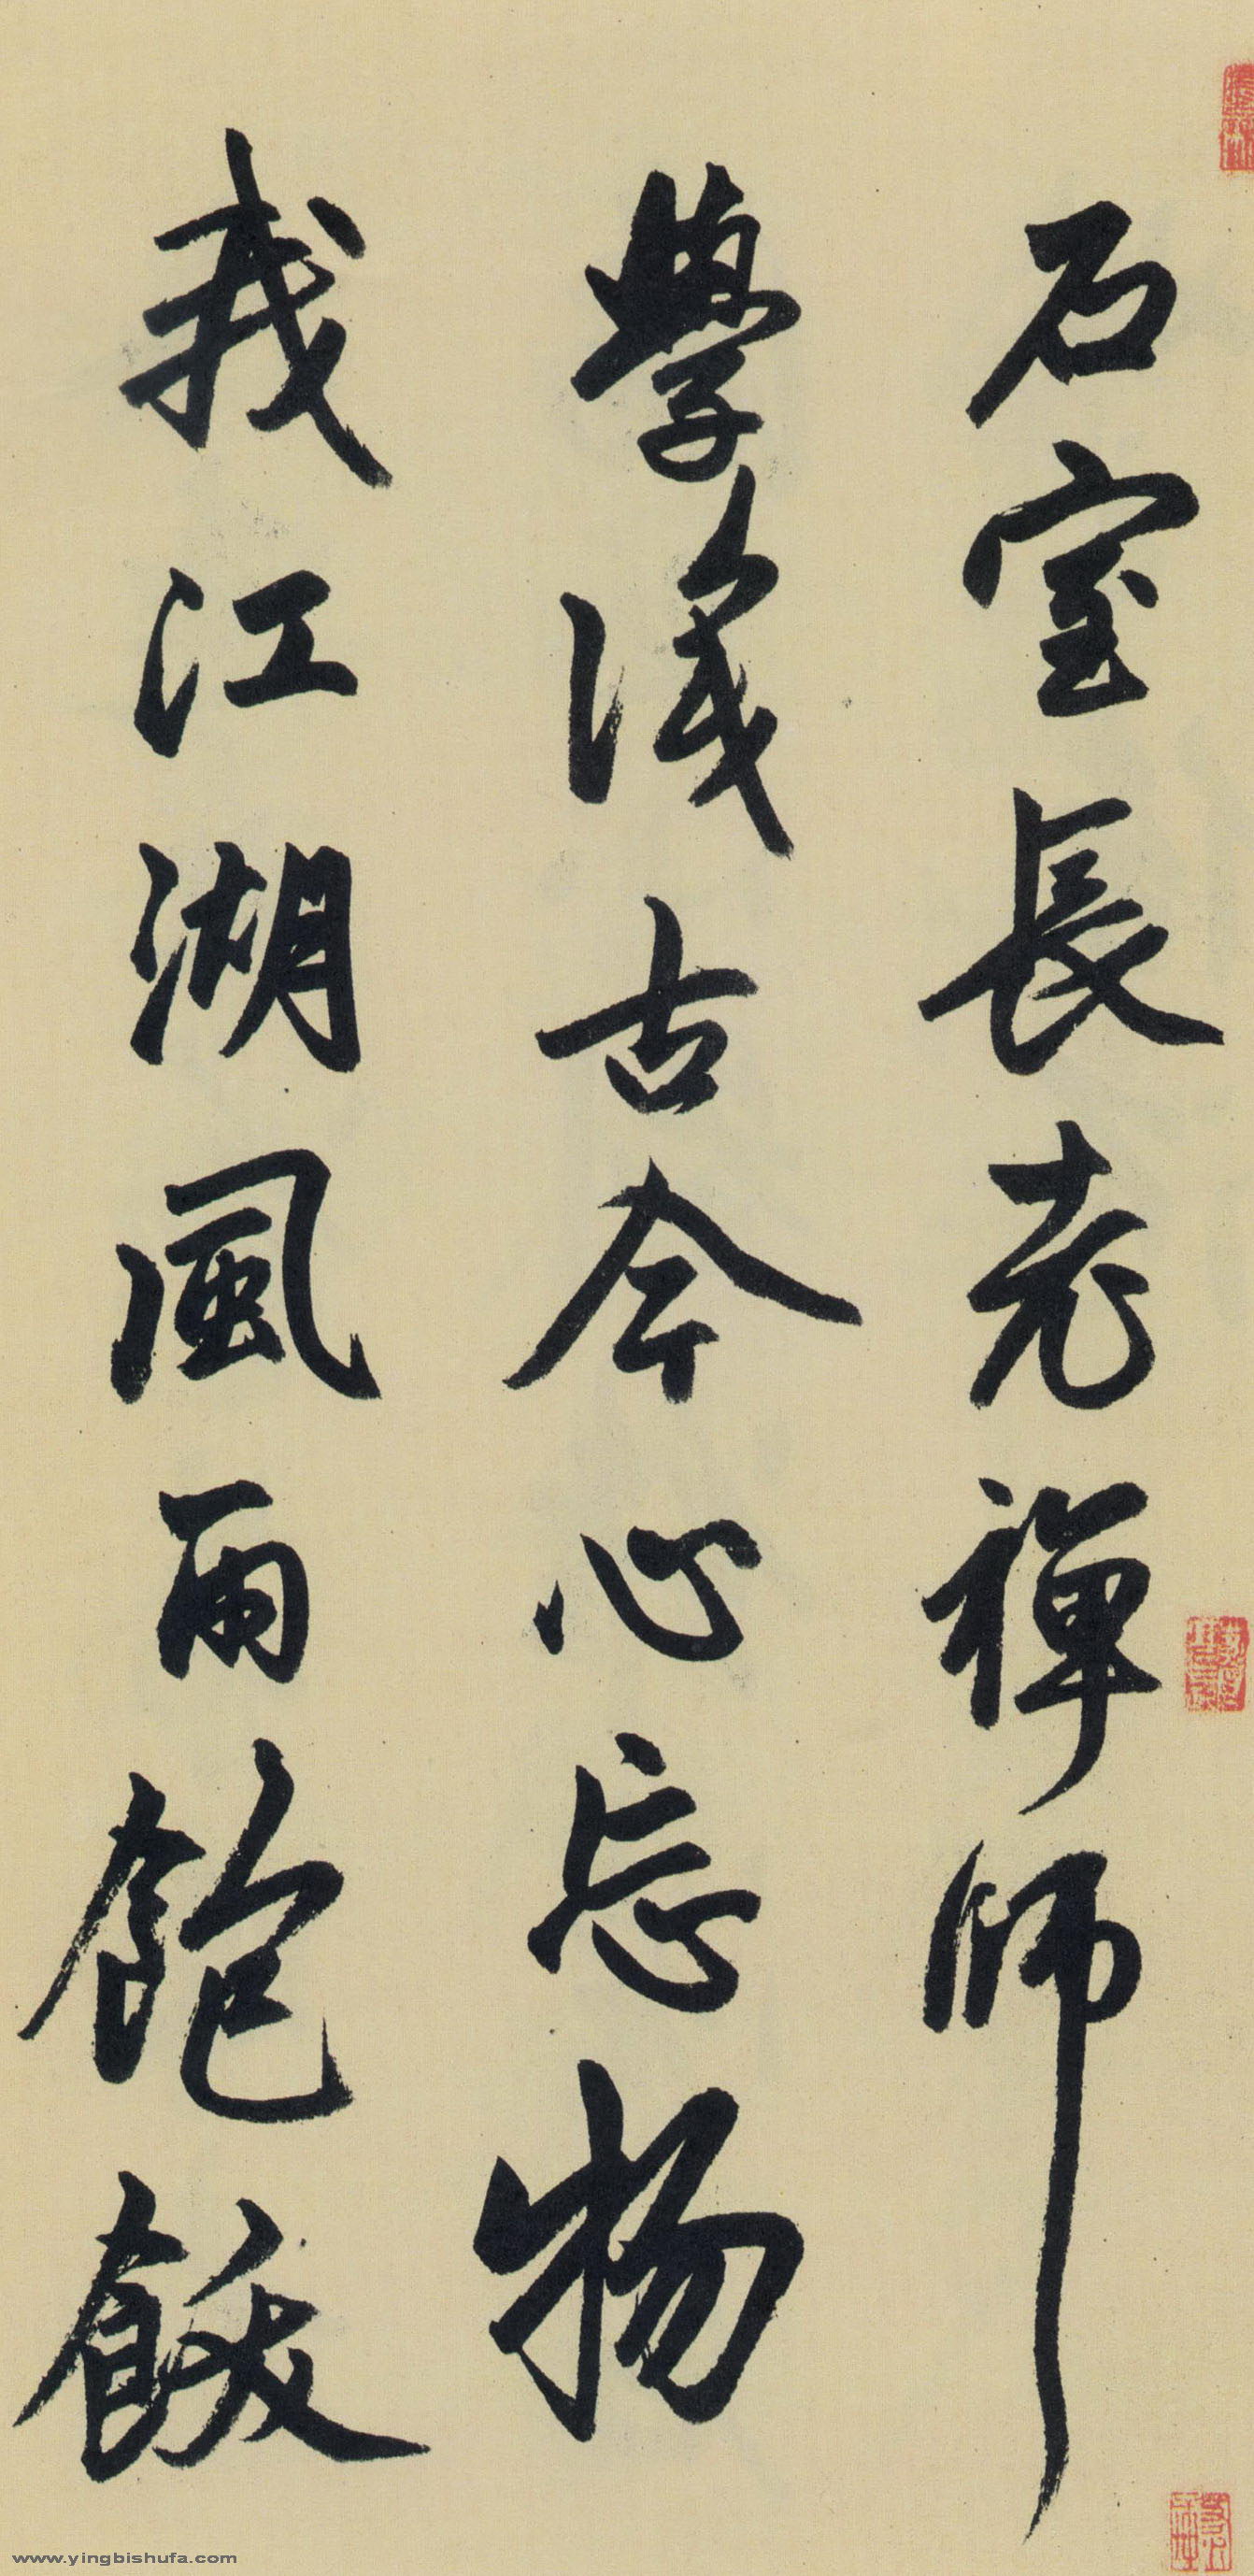 石室長老禪師
學識古今心忘物
我江湖風雨飽
www.yingbishufa.com